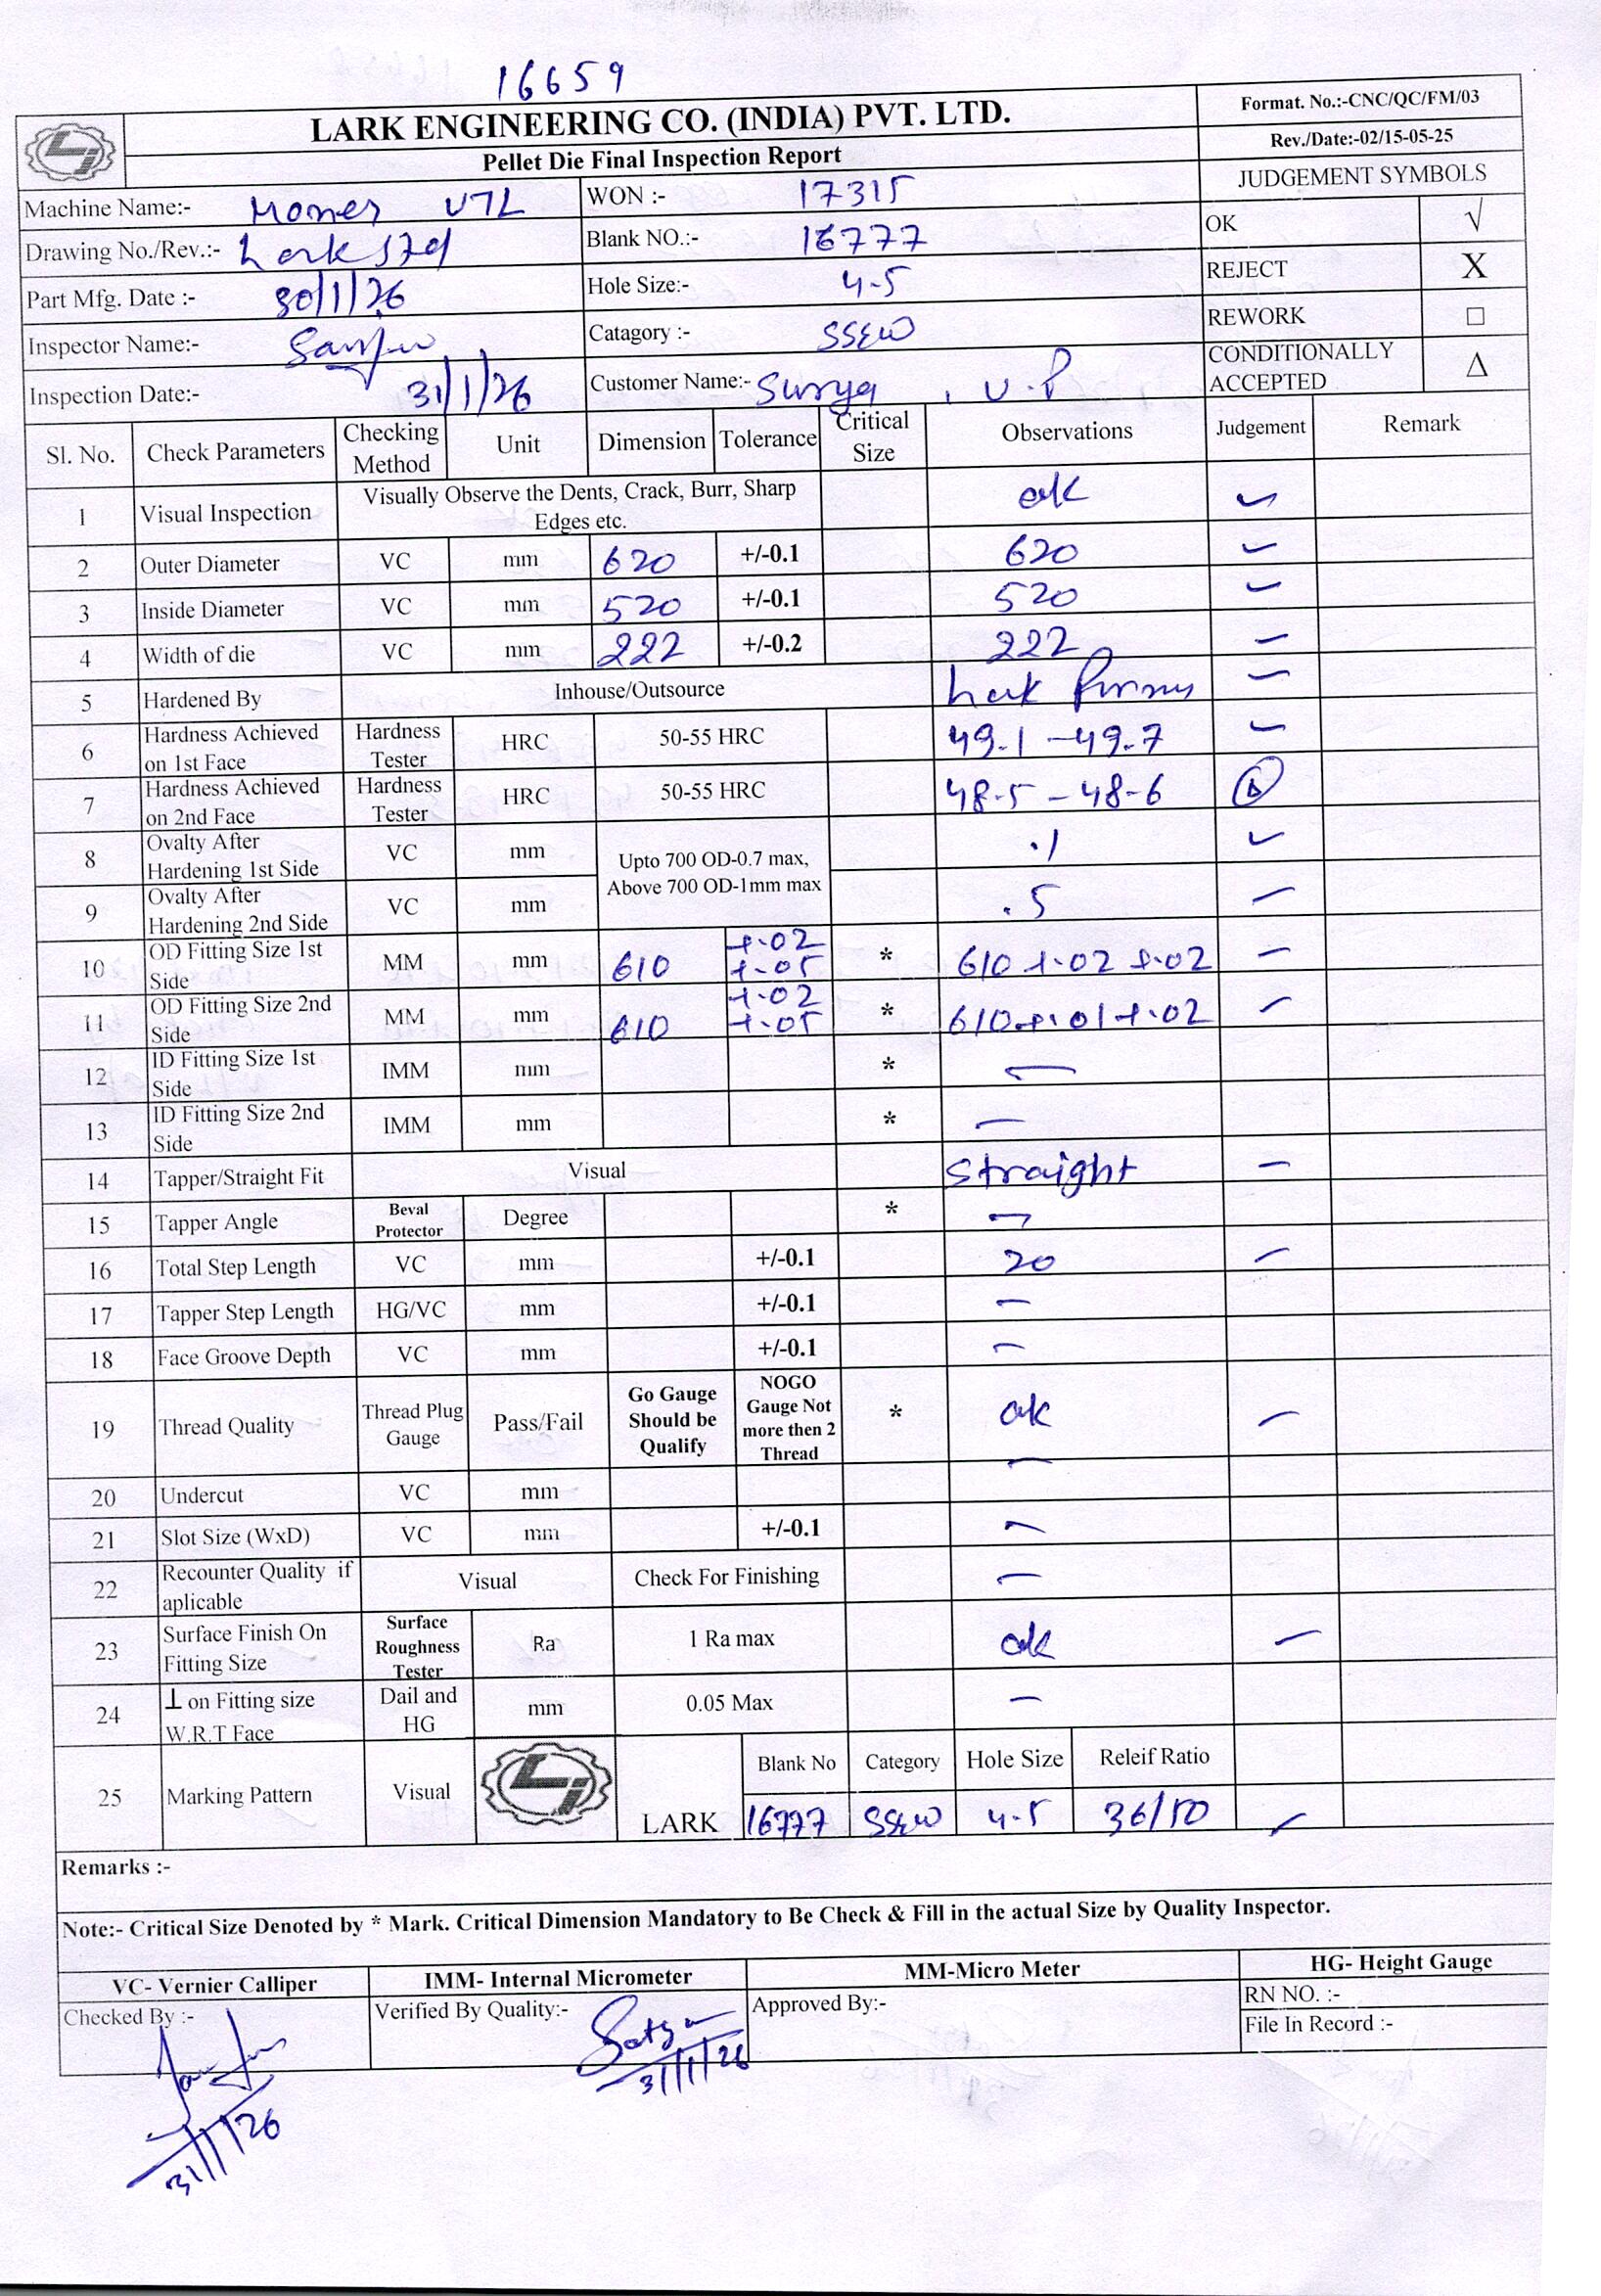 16659
LARK ENGINEERING CO. (INDIA) PVT. LTD.
Pellet Die Final Inspection Report
Format. No.:-CNC/QC/FM/03
Rev./Date:-02/15-05-25
JUDGEMENT SYMBOLS
Machine Name:- VTL
WON :- 17315
OK √
Drawing No./Rev.:- Lark Std
Blank NO.:- 16777
REJECT X
Part Mfg. Date :- 30/1/26
Hole Size:- 4.5
REWORK □
Inspector Name:-
Catagory :- SS&W
CONDITIONALLY ACCEPTED Δ
Inspection Date:- 31/1/26
Customer Name:- Surya, U.P
Sl. No. Check Parameters Checking Method Unit Dimension Tolerance Critical Size Observations Judgement Remark
1 Visual Inspection Visually Observe the Dents, Crack, Burr, Sharp Edges etc. ok ✓
2 Outer Diameter VC mm 620 +/-0.1 620 ✓
3 Inside Diameter VC mm 520 +/-0.1 520 ✓
4 Width of die VC mm 222 +/-0.2 222 ✓
5 Hardened By Inhouse/Outsource ✓
6 Hardness Achieved on 1st Face Hardness Tester HRC 50-55 HRC 49.1 - 49.7 ✓
7 Hardness Achieved on 2nd Face Hardness Tester HRC 50-55 HRC 48.5 - 48-6
8 Ovalty After Hardening 1st Side VC mm Upto 700 OD-0.7 max, Above 700 OD-1mm max .1 ✓
9 Ovalty After Hardening 2nd Side VC mm .5 ✓
10 OD Fitting Size 1st Side MM mm 610 +.02 +.05 * 610 +.02 +.02 ✓
11 OD Fitting Size 2nd Side MM mm 610 +.02 +.05 * 610 +.01 +.02 ✓
12 ID Fitting Size 1st Side IMM mm * —
13 ID Fitting Size 2nd Side IMM mm * —
14 Tapper/Straight Fit Visual Straight ✓
15 Tapper Angle Beval Protector Degree * —
16 Total Step Length VC mm +/-0.1 20 ✓
17 Tapper Step Length HG/VC mm +/-0.1 —
18 Face Groove Depth VC mm +/-0.1 —
19 Thread Quality Thread Plug Gauge Pass/Fail Go Gauge Should be Qualify NOGO Gauge Not more then 2 Thread * ok ✓
20 Undercut VC mm —
21 Slot Size (WxD) VC mm +/-0.1 —
22 Recounter Quality if aplicable Visual Check For Finishing —
23 Surface Finish On Fitting Size Surface Roughness Tester Ra 1 Ra max ok ✓
24 ⊥ on Fitting size W.R.T Face Dail and HG mm 0.05 Max —
25 Marking Pattern Visual LARK Blank No Category Hole Size Releif Ratio
16777 SS&W 4.5 36/50 ✓
Remarks :-
Note:- Critical Size Denoted by * Mark. Critical Dimension Mandatory to Be Check & Fill in the actual Size by Quality Inspector.
VC- Vernier Calliper IMM- Internal Micrometer MM-Micro Meter HG- Height Gauge
Checked By :- Verified By Quality:- Approved By:- RN NO. :-
File In Record :-
31/1/26
31/1/26